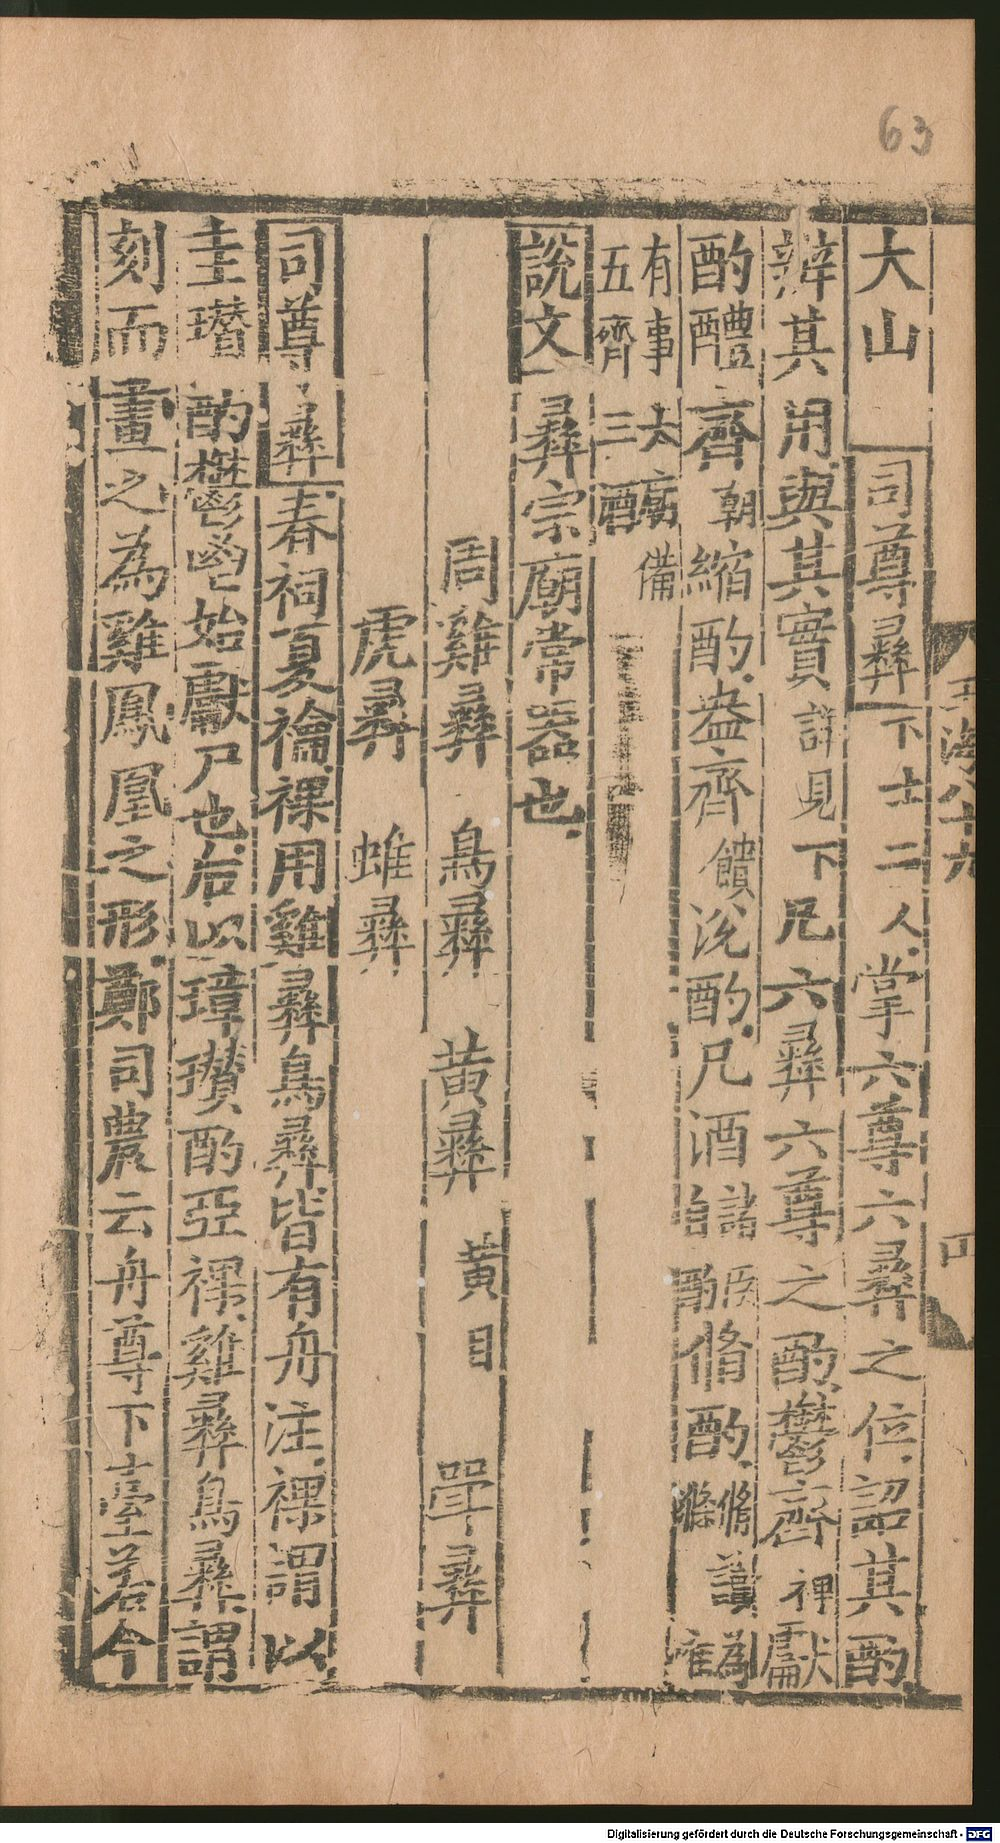 63
大山 司尊彝 下士二人 掌六尊六彝之位詔其酌
辨其用與其實 詳見下 凡六彝六尊之酌鬱齊 裸 獻
酌醴齊 朝 縮酌盎齊 饋 涚酌凡酒 諸臣自酌 脩酌 脩讀為滌
有事大廟備
五齊三酒
說文 彝宗廟常器也
周雞彝 鳥彝 黃彝 黃目 斝彝
虎彝 蜼彝
司尊彝 春祠夏禴祼用雞彝鳥彝皆有舟注祼謂以
圭瓚酌鬱鬯始獻尸也后以璋瓚酌亞祼雞彝鳥彝謂
刻而畫之為雞鳳凰之形鄭司農云舟尊下臺若今
玉海八十九
四
Digitalisierung gefördert durch die Deutsche Forschungsgemeinschaft - DFG